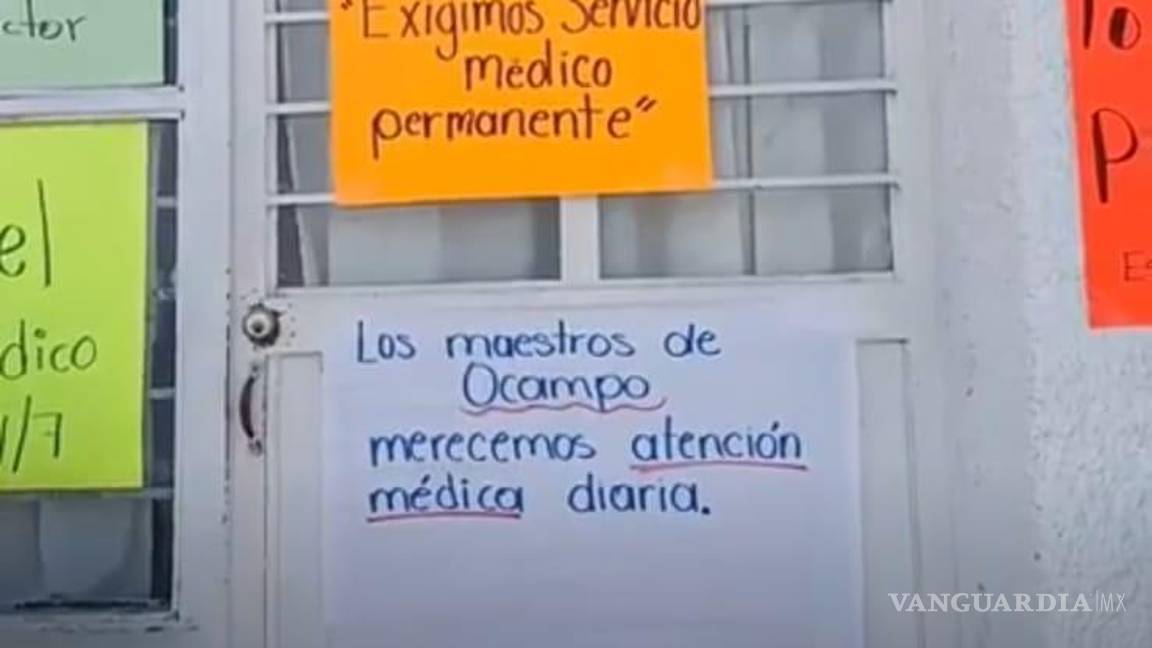 "Exigimos Servicio
médico
permanente"
Los maestros de
Ocampo
merecemos atención
médica diaria.
el
VANGUARDIA|MX